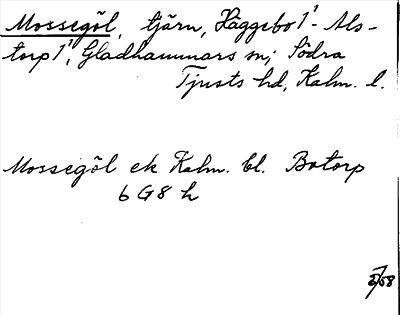 Mossegöl, tjärn, Häggebo 1¹ - Als-
torp 1¹, Gladhammars sn; Södra
Tjusts hd, Kalm. l.
Mossegöl ek Kalm. bl. Botorp
6 G 8 h